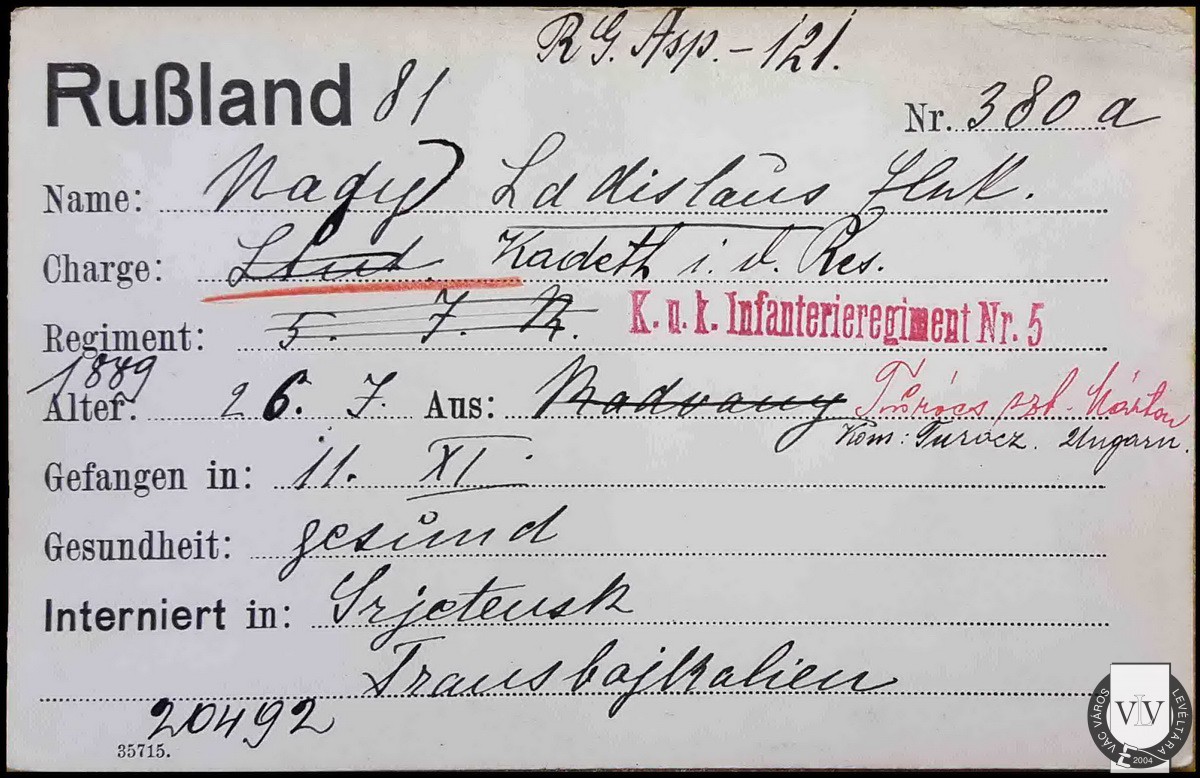 R G. Asp. - 121.
Rußland 81
Nr. 380 a
Name: Nagy Ladislaus
Charge: Kadeth i. d. Res.
Regiment: 5. J. R. K. u. k. Infanterieregiment Nr. 5
1889
Alter: 26. J. Aus: Radvany Turócs szt. Márton
Kom: Turócz. Ungarn.
Gefangen in: 11. XI.
Gesundheit: gesund
Interniert in: Srjetensk
Transbajkalien
20492
35715.
VÁC VÁROS LEVÉLTÁRA
VLV
2004